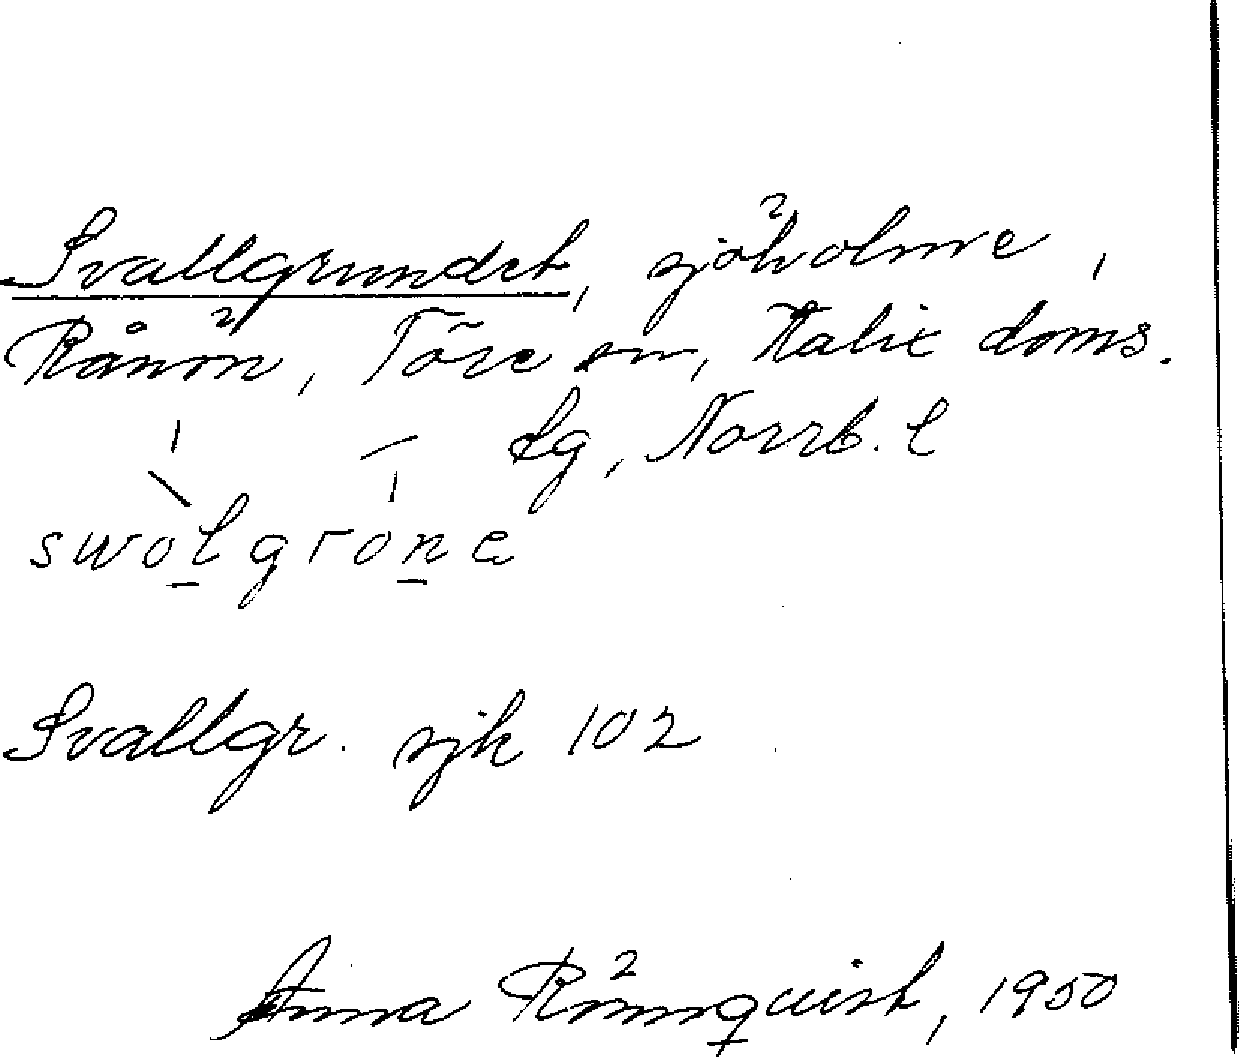 Svallgrundet, sjöholme,
Rånön, Töre sn, Kalix doms.
lg, Norrb. l
swolgrona
Svallgr. sjk 102
Anna Rönnquist, 1950